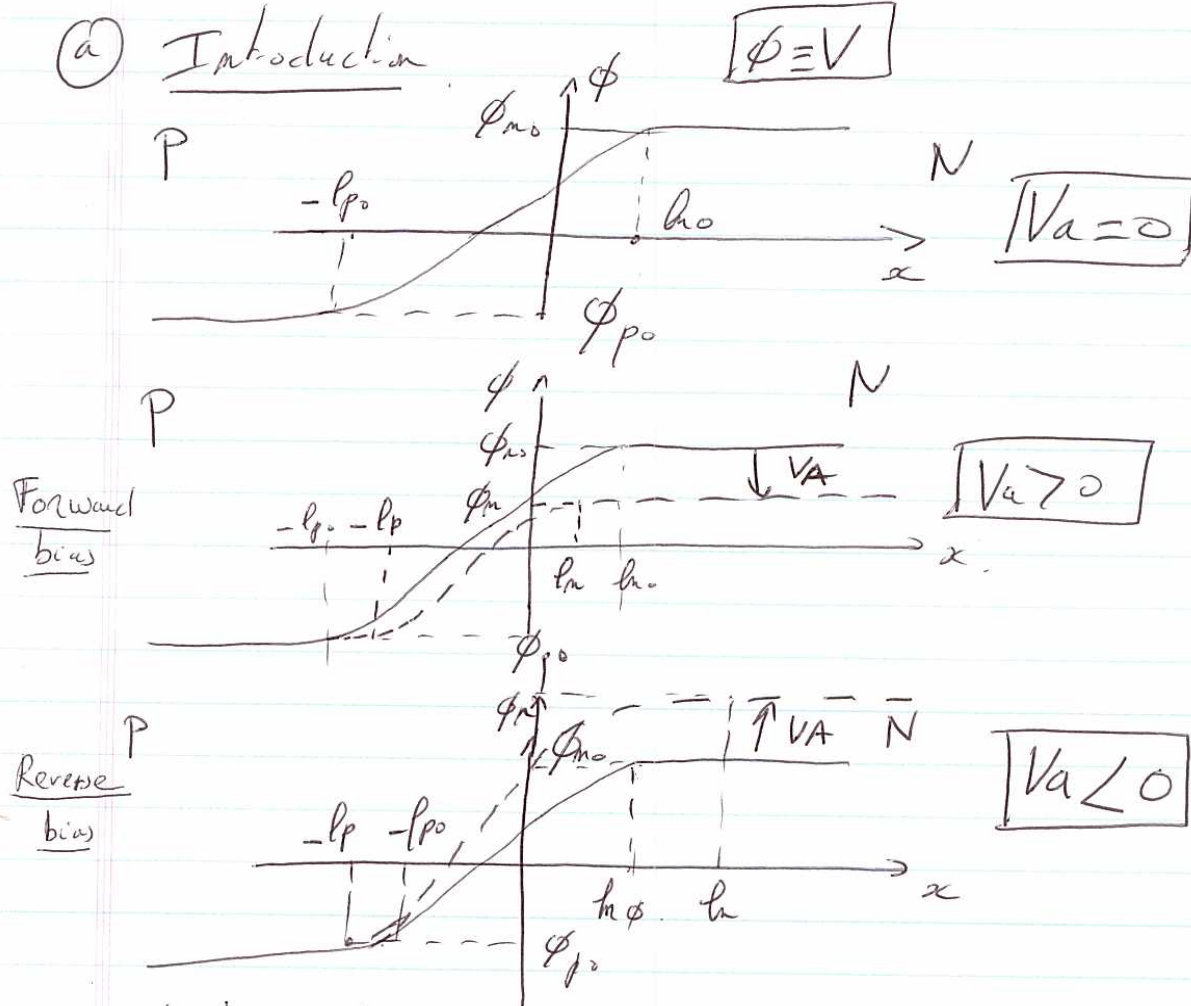 (a) Introduction
ϕ ≡ V
ϕ
ϕn₀
P
N
-lp₀
ln₀
Va = 0
x
ϕp₀
ϕ
N
P
ϕn₀
VA
Va > 0
Forward
bias
ϕn
-lp₀ -lp
x
ln ln₀
ϕp₀
ϕn
P
VA N
ϕn₀
Reverse
bias
Va < 0
-lp -lp₀
x
lnϕ ln
ϕp₀